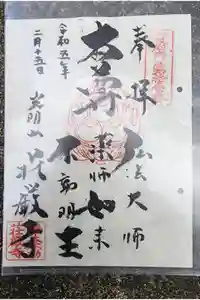 奉拝 弘法大師
本尊 薬師如来
不動明王
令和五年
二月十五日
光明山 荘厳寺